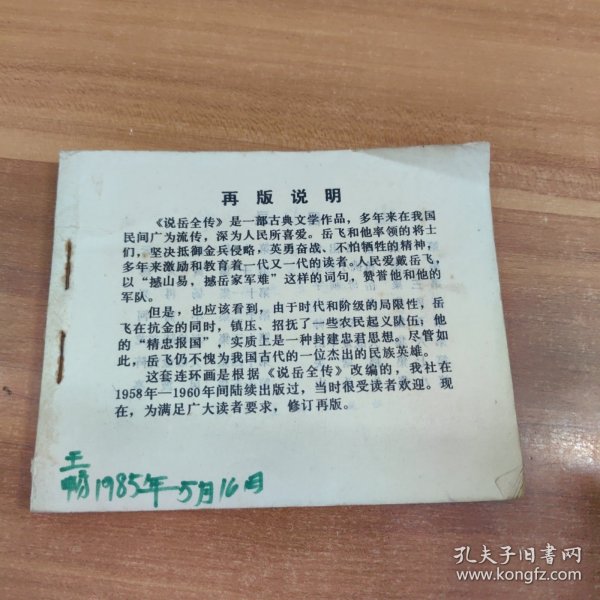 再版说明
《说岳全传》是一部古典文学作品，多年来在我国
民间广为流传，深为人民所喜爱。岳飞和他率领的将士
们，坚决抵御金兵侵略，英勇奋战、不怕牺牲的精神，
多年来激励和教育着一代又一代的读者。人民爱戴岳飞，
以“撼山易，撼岳家军难”这样的词句，赞誉他和他的
军队。
但是，也应该看到，由于时代和阶级的局限性，岳
飞在抗金的同时，镇压、招抚了一些农民起义队伍；他
的“精忠报国”，实质上是一种封建忠君思想。尽管如
此，岳飞仍不愧为我国古代的一位杰出的民族英雄。
这套连环画是根据《说岳全传》改编的，我社在
1958年—1960年间陆续出版过，当时很受读者欢迎。现
在，为满足广大读者要求，修订再版。
王
1985年5月16日
孔夫子旧书网
www.kongfz.com